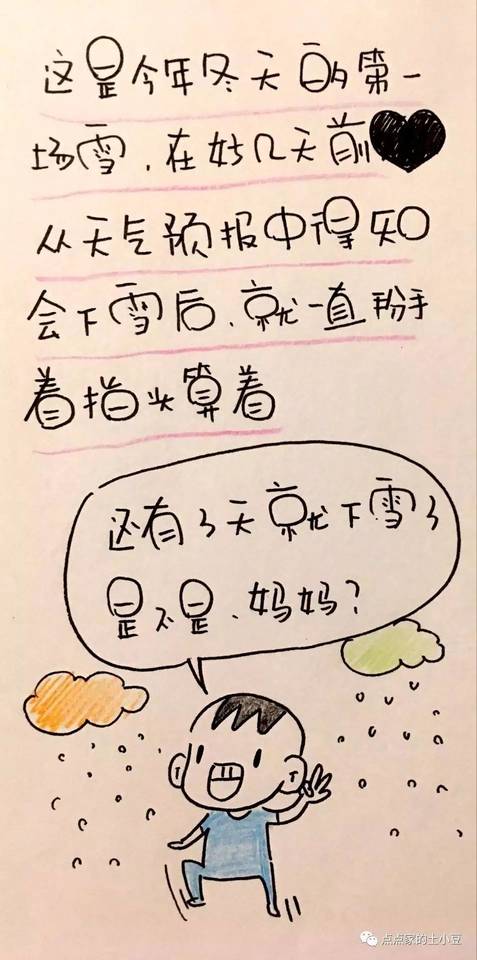 这是今年冬天的第一
场雪，在好几天前
从天气预报中得知
会下雪后、就一直掰
着指头算着
还有3天就下雪了
是不是、妈妈？
点点家的土小豆